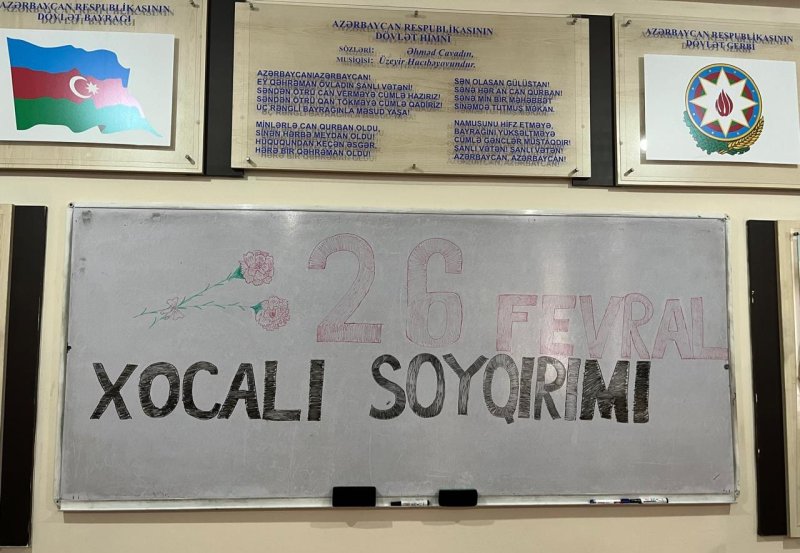 AZƏRBAYCAN RESPUBLİKASININ
DÖVLƏT BAYRAĞI
AZƏRBAYCAN RESPUBLİKASININ
DÖVLƏT HİMNİ
SÖZLƏRİ: Əhməd Cavadın,
MUSİQİSİ: Üzeyir Hacıbəyovundur.
AZƏRBAYCAN!AZƏRBAYCAN!
EY QƏHRƏMAN ÖVLADIN ŞANLI VƏTƏNİ!
SƏNDƏN ÖTRÜ CAN VERMƏYƏ CÜMLƏ HAZIRIZ!
SƏNDƏN ÖTRÜ QAN TÖKMƏYƏ CÜMLƏ QADİRİZ!
ÜÇ RƏNGLİ BAYRAĞINLA MƏSUD YAŞA!
MİNLƏRLƏ CAN QURBAN OLDU,
SİNƏN HƏRBƏ MEYDAN OLDU!
HÜQUQUNDAN KEÇƏN ƏSGƏR,
HƏRƏ BİR QƏHRƏMAN OLDU!
SƏN OLASAN GÜLÜSTAN!
SƏNƏ HƏR AN CAN QURBAN!
SƏNƏ MİN BİR MƏHƏBBƏT
SİNƏMDƏ TUTMUŞ MƏKAN.
NAMUSUNU HİFZ ETMƏYƏ,
BAYRAĞINI YÜKSƏLTMƏYƏ
CÜMLƏ GƏNCLƏR MÜŞTAQDIR!
ŞANLI VƏTƏN! ŞANLI VƏTƏN!
AZƏRBAYCAN, AZƏRBAYCAN!
AZƏRBAYCAN RESPUBLİKASININ
DÖVLƏT GERBİ
26 FEVRAL
XOCALI SOYQIRIMI